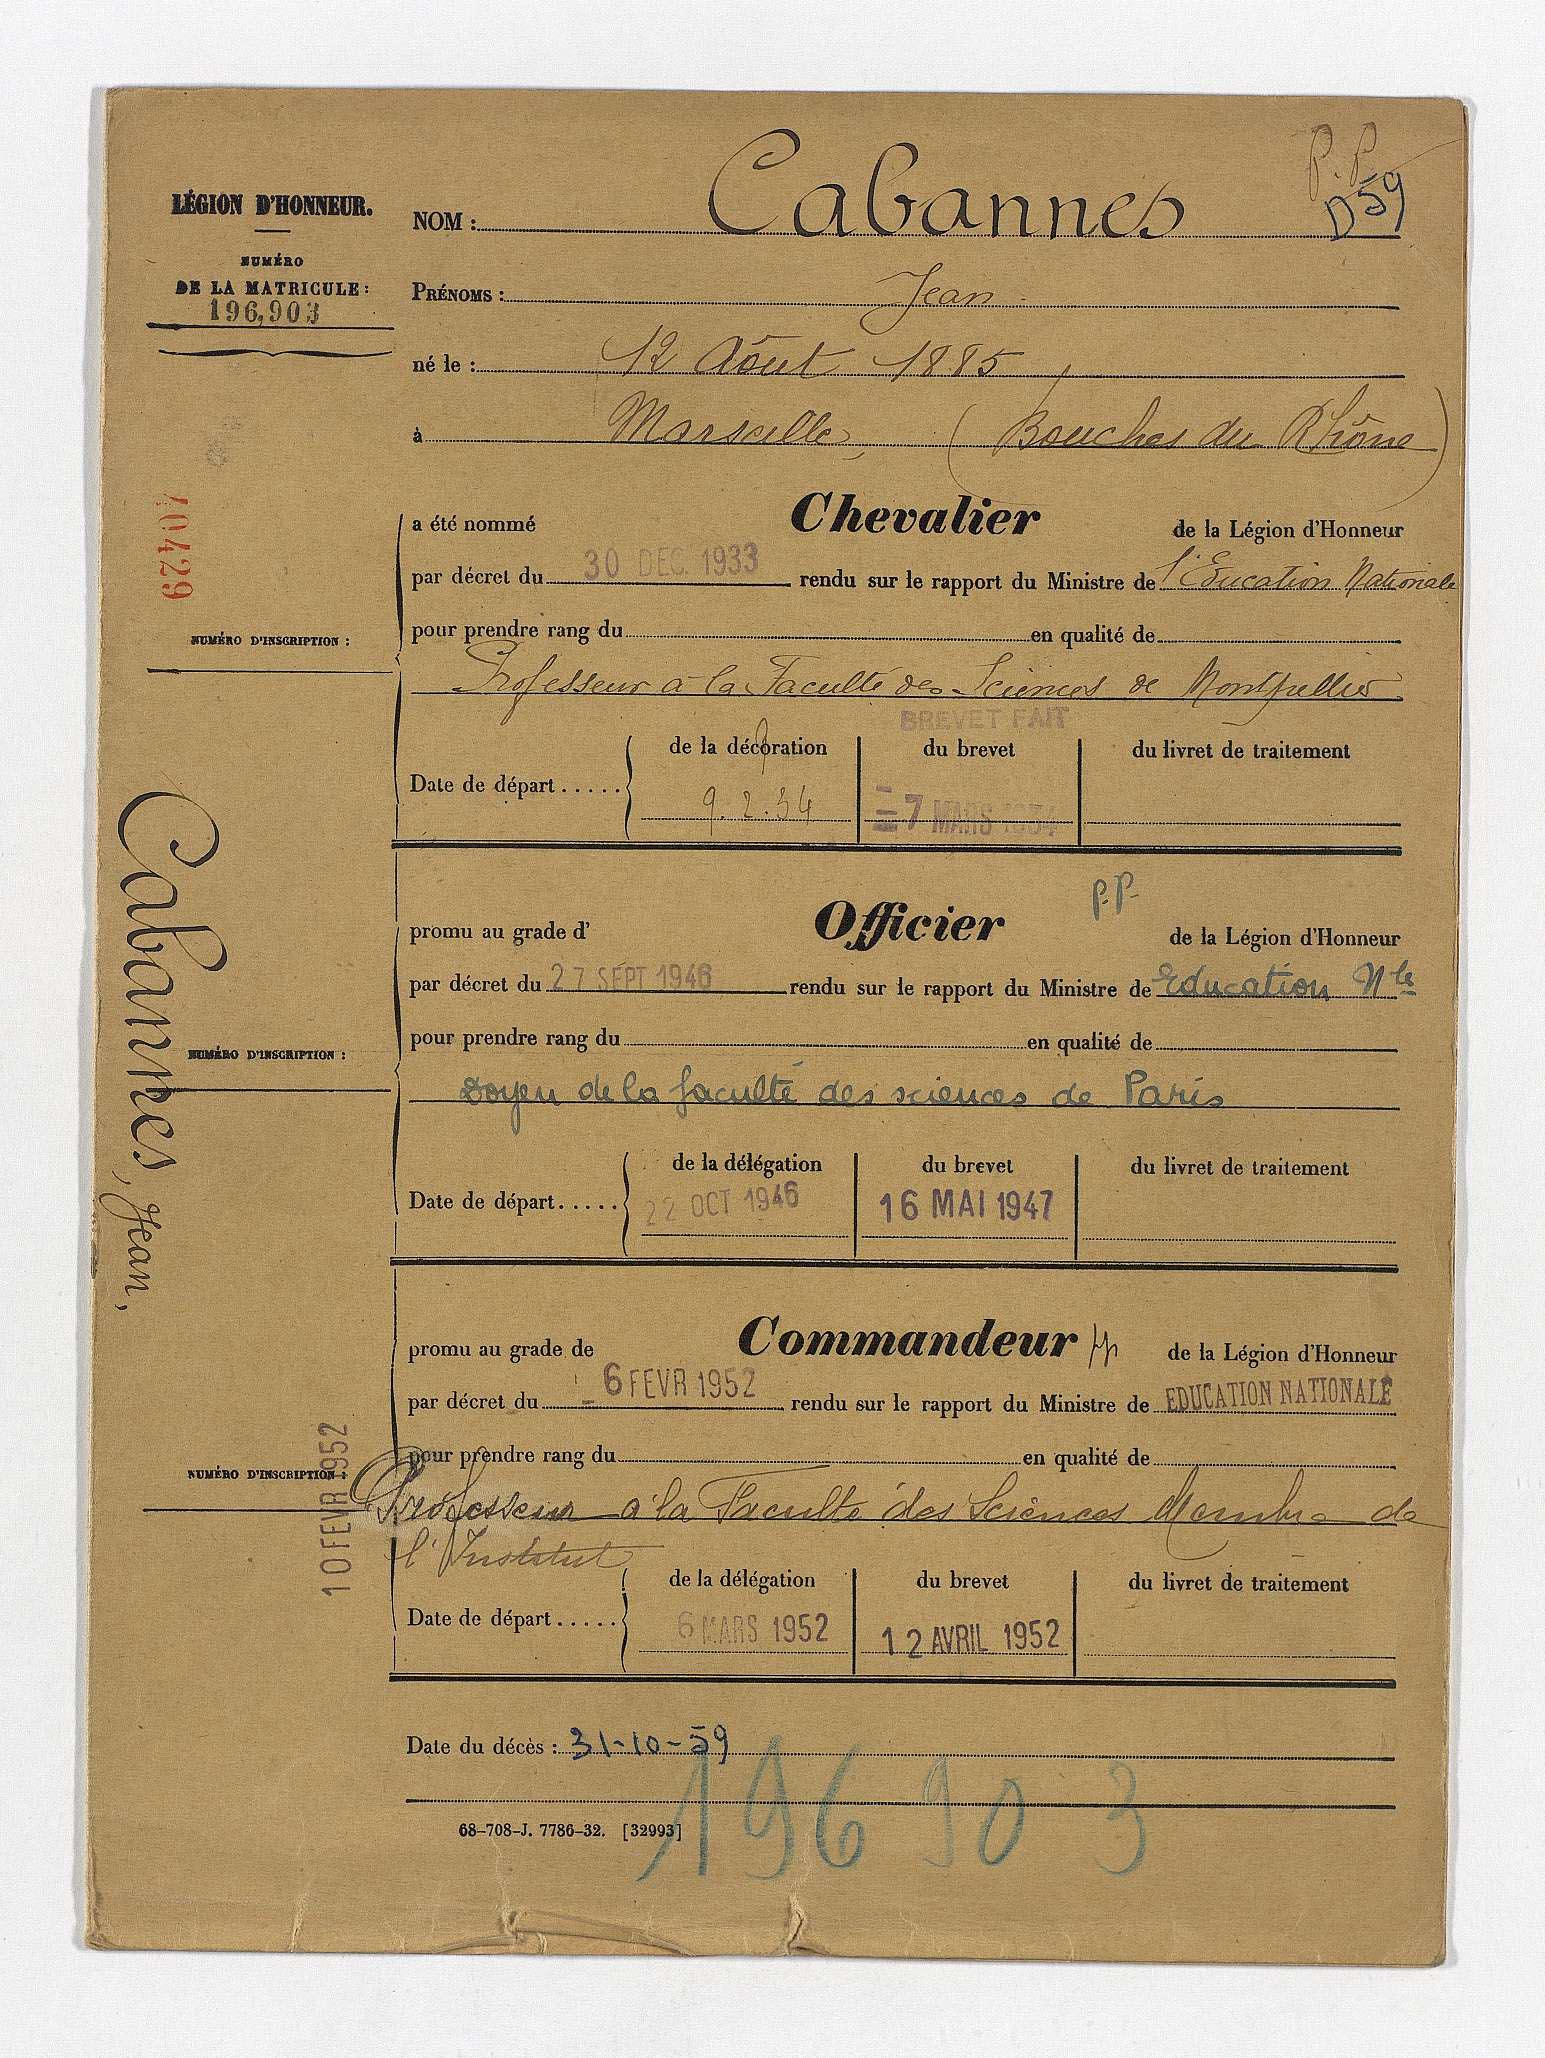 P.P.
D59
LÉGION D'HONNEUR.
NUMÉRO
DE LA MATRICULE:
196,903
NOM : Cabannes
PRÉNOMS : Jean
né le : 12 Août 1885
à Marseille, (Bouches du Rhône)
70429
a été nommé Chevalier de la Légion d'Honneur
par décret du 30 DEC. 1933 rendu sur le rapport du Ministre de l'Education Nationale
pour prendre rang du en qualité de
NUMÉRO D'INSCRIPTION :
Professeur à la Faculté des Sciences de Montpellier
BREVET FAIT
de la décoration du brevet du livret de traitement
Date de départ.....
9.2.34 =7 MARS 1934
Cabannes, Jean,
P.P.
promu au grade d' Officier de la Légion d'Honneur
par décret du 27 SEPT 1946 rendu sur le rapport du Ministre de Education Nle
pour prendre rang du en qualité de
NUMÉRO D'INSCRIPTION :
Doyen de la faculté des sciences de Paris
de la délégation du brevet du livret de traitement
Date de départ..... 22 OCT 1946 16 MAI 1947
promu au grade de Commandeur pp de la Légion d'Honneur
par décret du - 6 FEVR 1952 rendu sur le rapport du Ministre de EDUCATION NATIONALE
pour prendre rang du en qualité de
NUMÉRO D'INSCRIPTION :
10 FEVR 1952
Professeur à la Faculté des Sciences Membre de
l'Institut
de la délégation du brevet du livret de traitement
Date de départ..... 6 MARS 1952 12 AVRIL 1952
Date du décès : 31-10-59
196903
68-708-J. 7786-32. [32993]